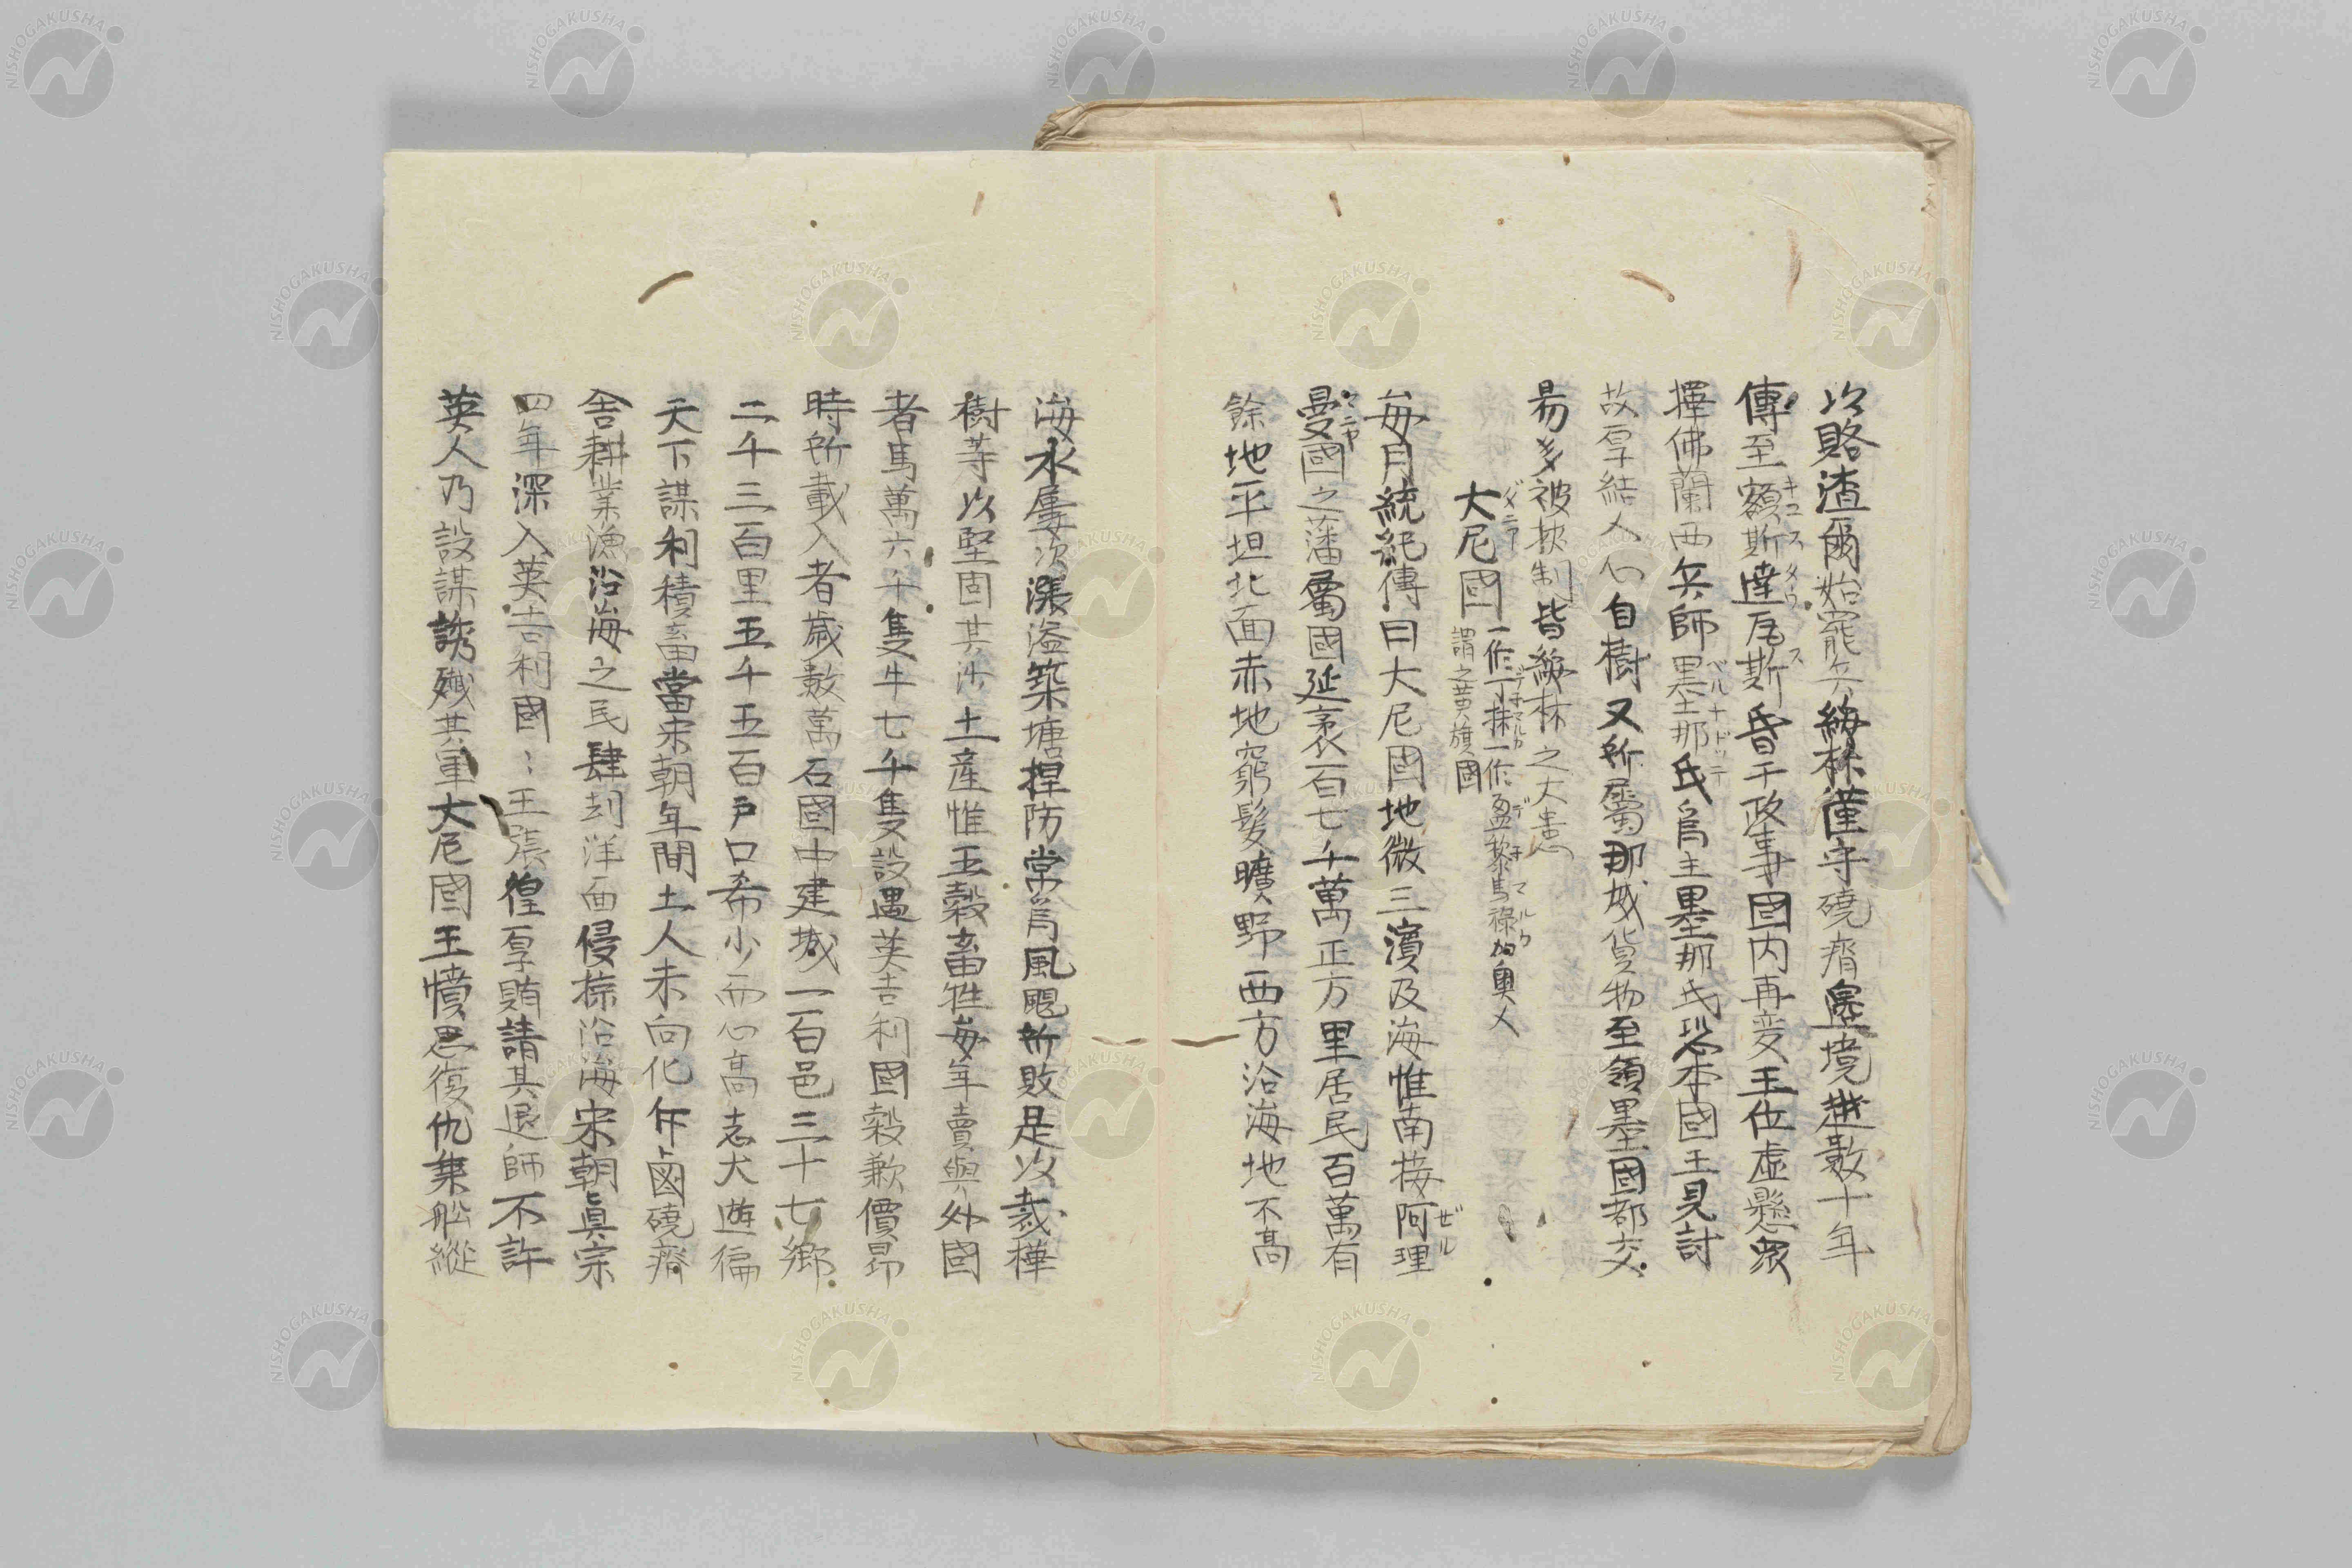 以賂渣爾始寵兵綈林僅守磽瘠邊境越數十年
傳至額斯達尾斯昏干政事國内再變王位虛懸衆
キユスタウス
擇佛蘭西兵師墨那氏爲主墨那氏恐本國王見討
ベルナドッテ
故厚結人心自樹又所屬那威貨物至領墨國都交
易多被挾制皆綈林之大患
大尼國
ダニア
一作丁抹一作盈黎馬祿加奥人
デネマルカ
デネマルク
謂之黄旗國
毎月統紀傳曰大尼國地微三濵及海惟南接阿理
ゼル
曼國之藩屬國延袤一百七千萬正方里居民百萬有
マニヤ
餘地平坦北面赤地窮髮曠野西方沿海地不高
海水屢次漲溢築塘捏防常爲風颶所敗是以栽樺
樹等以堅固其沙土産惟五穀畜牲毎年賣與外國
者馬萬六千隻牛七千隻設遇英吉利國穀歉價昂
時所載入者歳數萬石國中建城一百邑三十七鄉
二千三百里五千五百戸口希少而心高志大遊徧
天下謀利積畜當宋朝年間土人未向化斥鹵磽瘠
舍耕業漁沿海之民肆刧洋面侵掠沿海宋朝眞宗
四年深入英吉利國〻王張徨厚賄請其退師不許
英人乃設謀誘殲其軍大尼國王憤思復仇集船縱